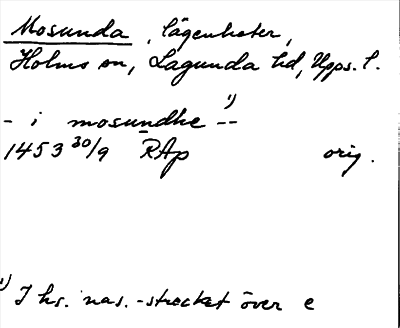 Mosunda, lägenheter,
Holms sn, Lagunda hd, Upps. l.
- i mosundhe -- 1)
1453 30/9 RAp orig.
1) I hs. nas.-strecket över e